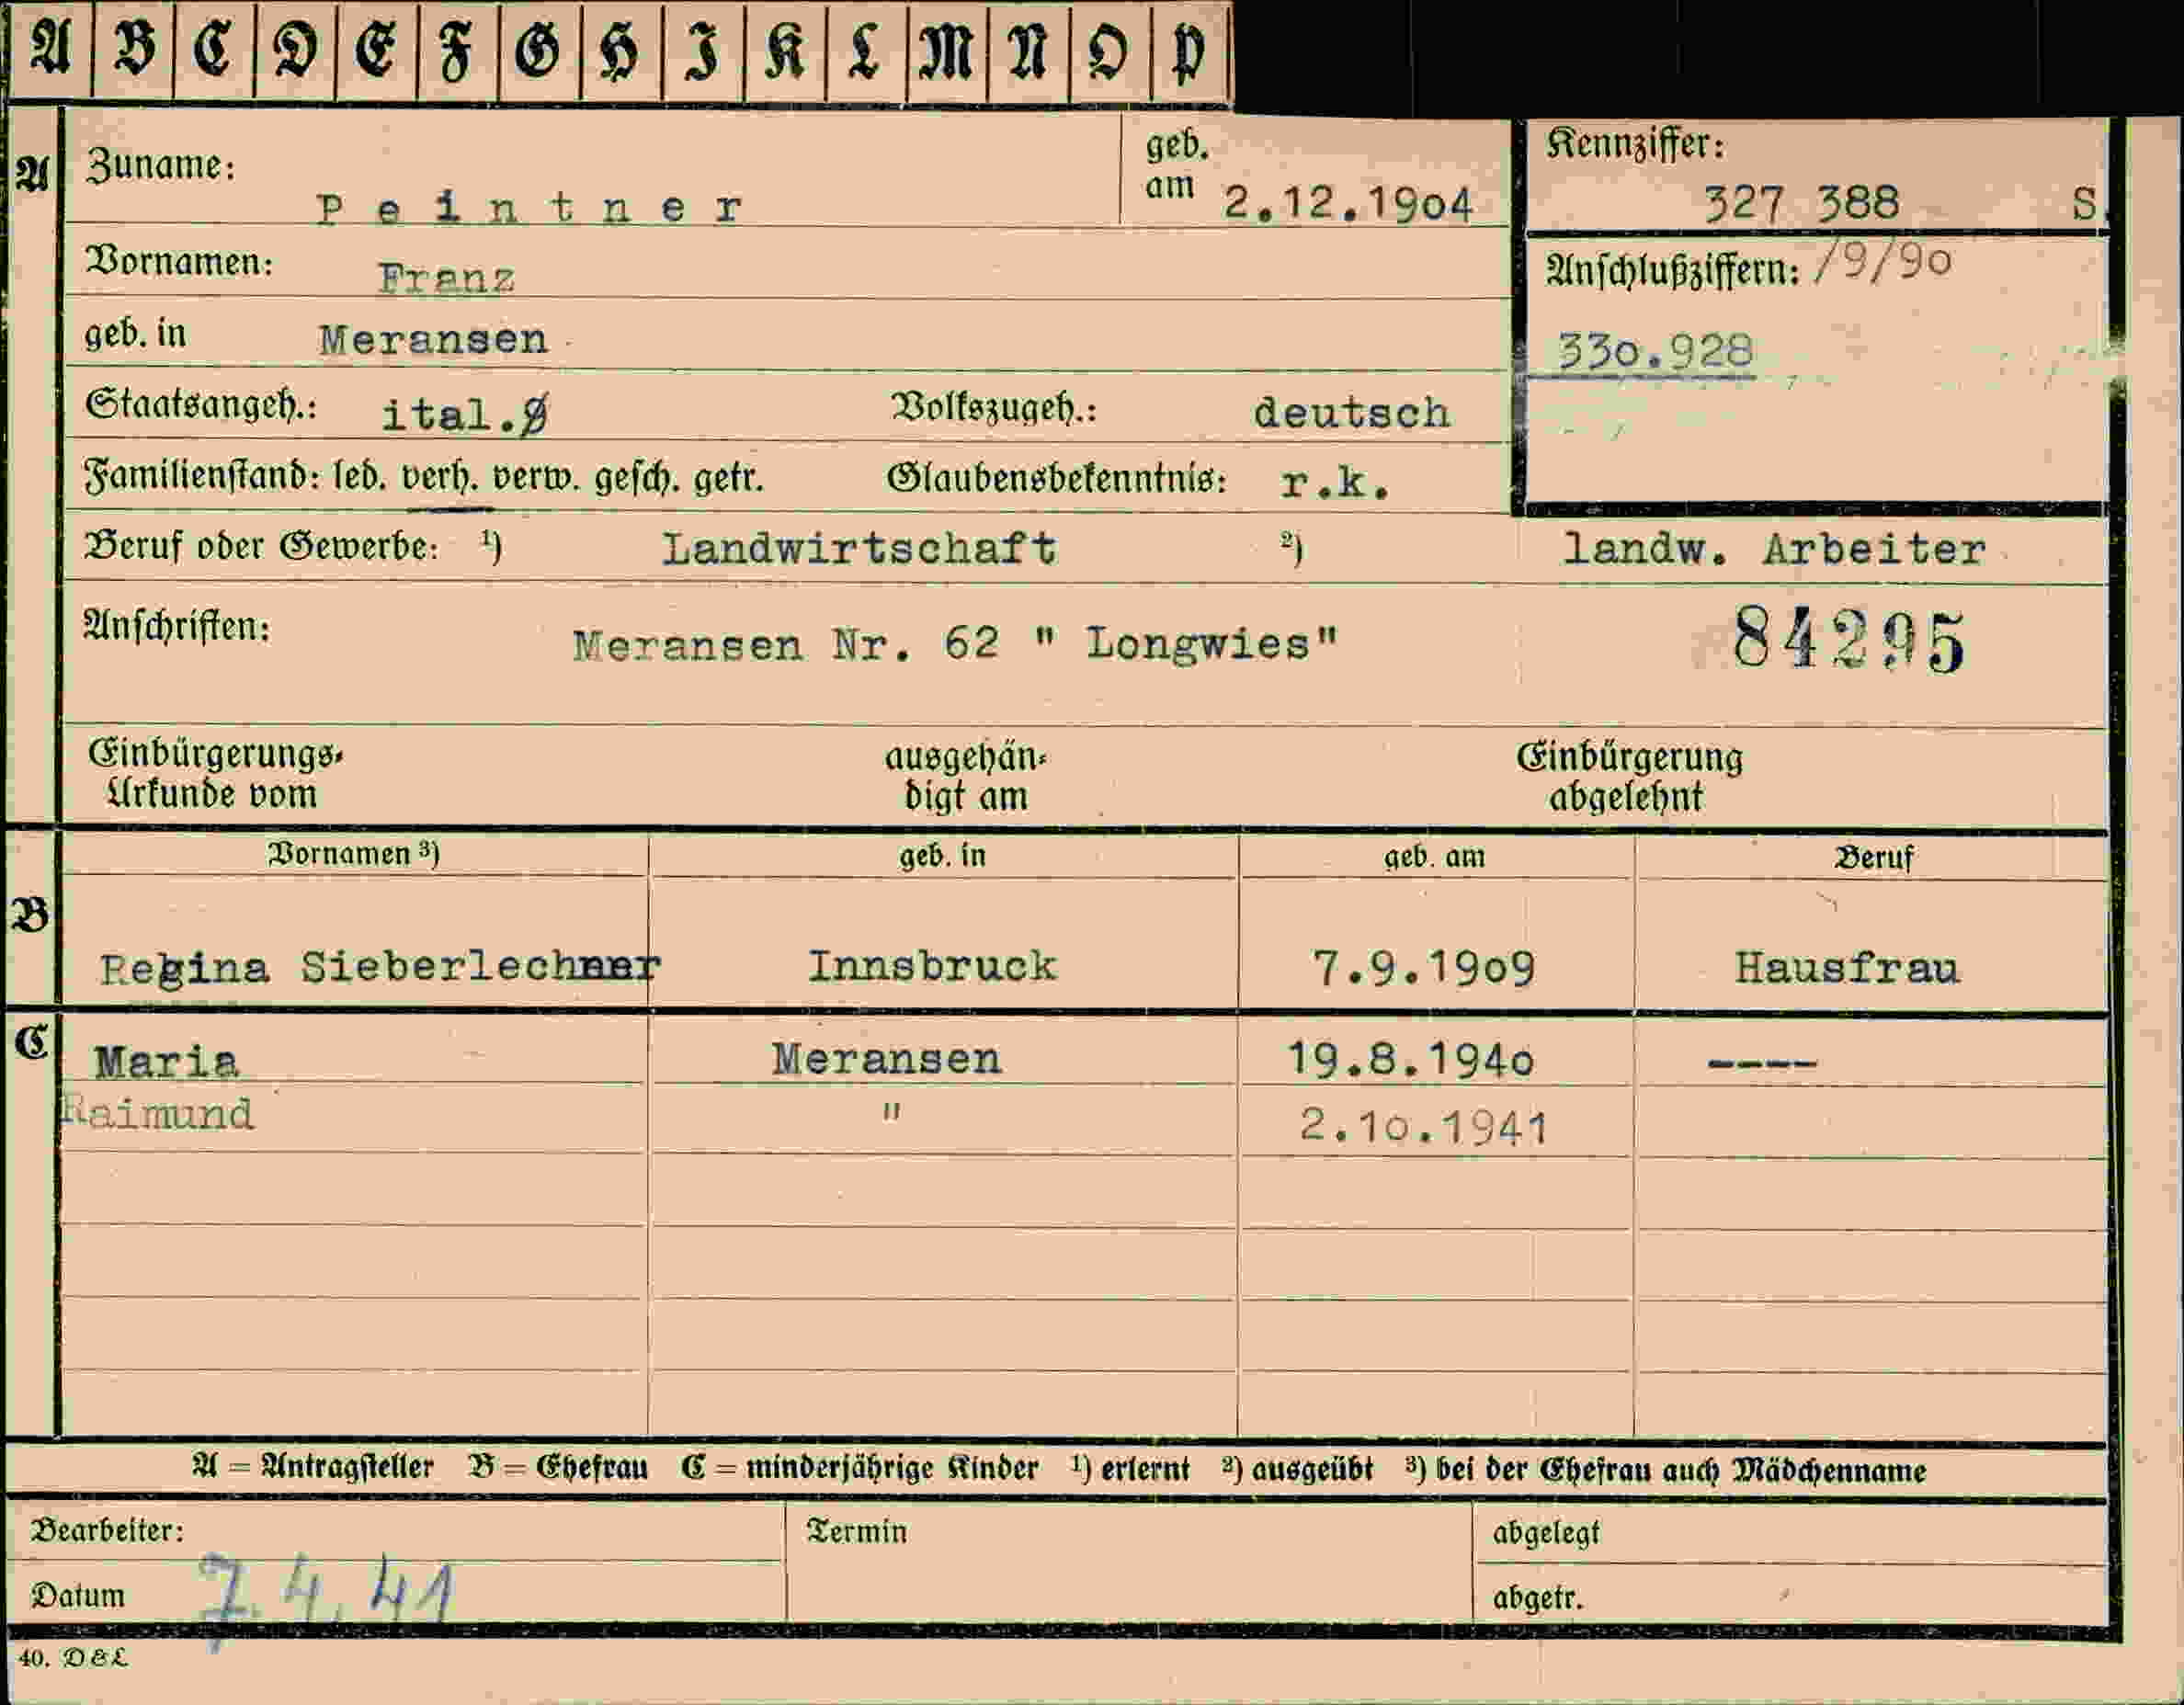 A B C D E F G H I K L M N O P
A
Zuname: Peintner
geb. am 2.12.1904
Kennziffer: 327 388 S.
Vornamen: Franz
Anschlußziffern: /9/90
330.928
geb. in Meransen
Staatsangeh.: ital. Volkszugeh.: deutsch
Familienstand: led. verh. verw. gesch. getr. Glaubensbekenntnis: r.k.
Beruf oder Gewerbe: ¹) Landwirtschaft ²) landw. Arbeiter
Anschriften: Meransen Nr. 62 " Longwies" 84295
Einbürgerungs- ausgehän- Einbürgerung
Urkunde vom digt am abgelehnt
Vornamen ³) geb. in geb. am Beruf
B
Regina Sieberlechner Innsbruck 7.9.1909 Hausfrau
C
Maria Meransen 19.8.1940 ----
Raimund " 2.10.1941
A = Antragsteller B = Ehefrau C = minderjährige Kinder ¹) erlernt ²) ausgeübt ³) bei der Ehefrau auch Mädchenname
Bearbeiter: Termin abgelegt
Datum 7.4.41 abgetr.
40. D & L